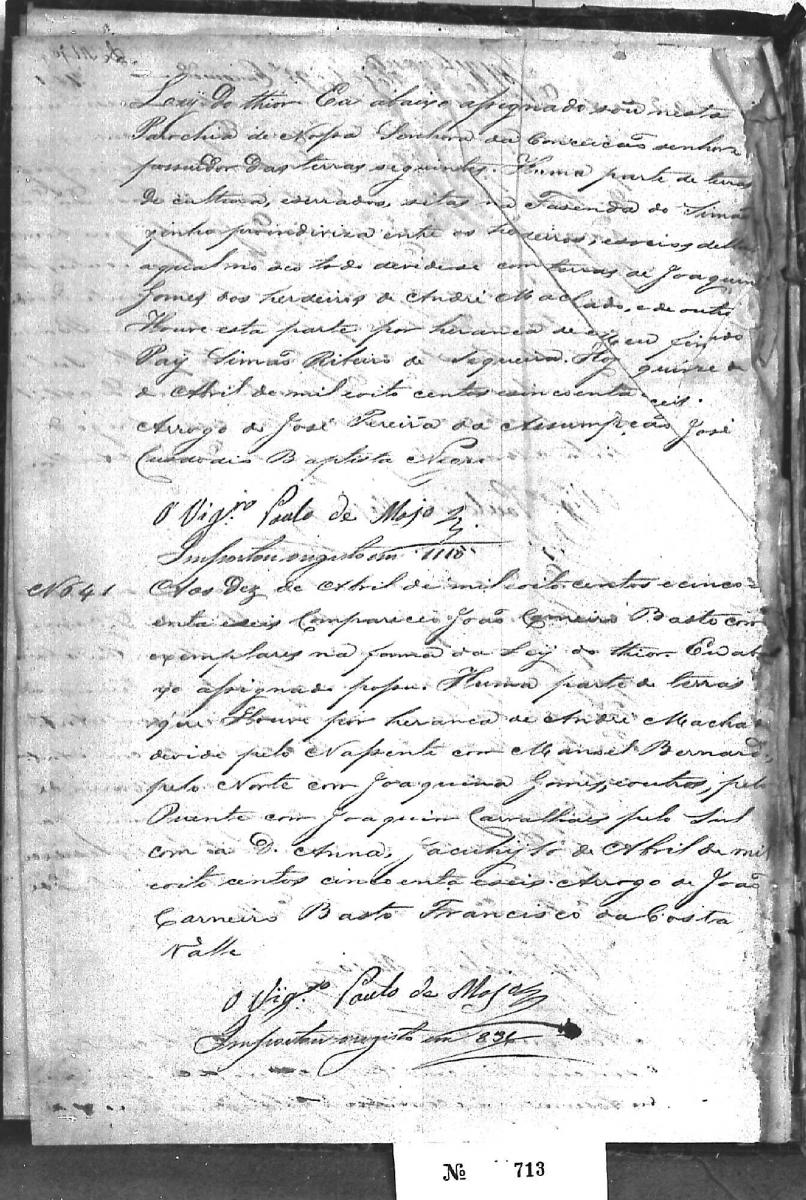 Ley do thior. Eu abaixo assignado sou nesta
Parochia de Nossa Senhora da Conceicaõ senhor
possuidor das terras seguintes. Huma parte de terras
de cultura, eserrados, sitas na Fazenda do Simaõ
zinho proindiviza entre os herdeiros, esocios della
aqual no seo todo devidese com terras de Joaquim
Gomes dos herdeiros de André Machado, e de outro
Houve esta parte por heranca de Meu finado
Pay Simaõ Ribeiro de Siqueira. Hoj quinze de
de Abril de mil eoito centos esincoenta eseis.
Arrogo de José Pereira da Assumpção José
Baptista Negro
O Vigr.ro Paulo de Mojo
Importou oregisto em 1118
No. 41 Aos Dez de Abril de mil eoito centos ecinco=
enta eseis Compareceo Joaõ Carneiro Basto com
exemplares na forma da Ley do thior. Eu abai
xo assignado possu. Huma parte de terras
que Houve por heranca de André Macha
devide pelo Nassente com Manoel Bernard,
pelo Norte com Joaquina Gomes, eoutros, pelo
Puente com Joaquim Carvalhaes pelo Sul
com a D. Anna, Jacuhy 10 de Abril de mil
eoito centos cincoenta eseis Arrogo de Joaõ
Carneiro Basto Francisco da Costa
Valle
O Vigr.o Paulo de Mojo
Importou oregisto em 836
No 713